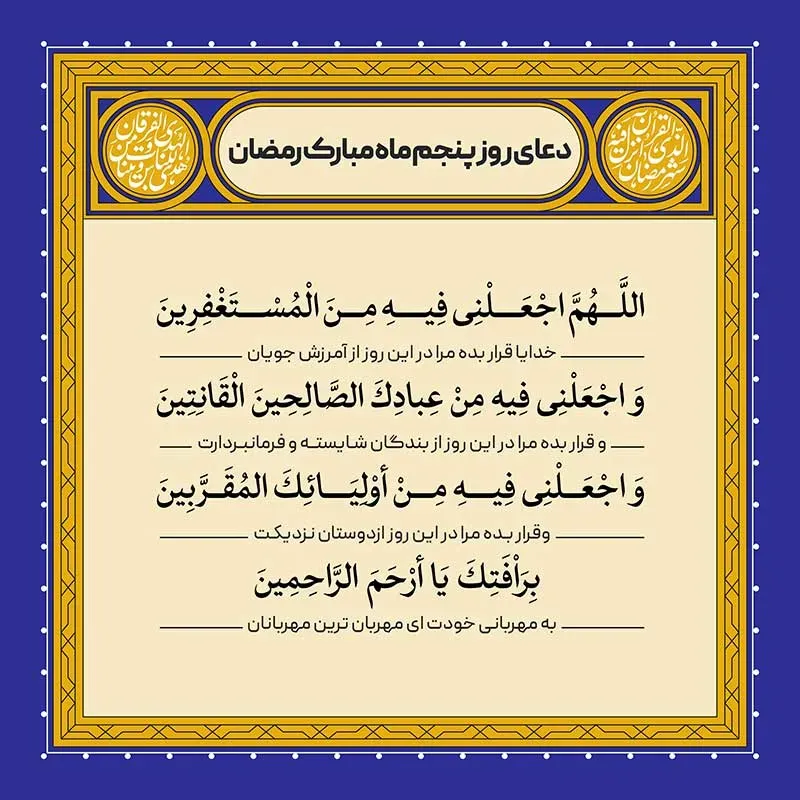 دعای روز پنجم ماه مبارک رمضان
شهر رمضان الذی انزل فیه القرآن
هدی للناس و بینات من الهدی و الفرقان
اللَّـهُمَّ اجْعَـلْنِی فِیـهِ مِـنَ الْمُسْـتَغْفِرِینَ
خدایا قرار بده مرا در این روز از آمرزش جویان
وَ اجْعَلْنِی فِیهِ مِنْ عِبادِكَ الصَّالِحِینَ الْقَانِتِینَ
و قرار بده مرا در این روز از بندگان شایسته و فرمانبردارت
وَ اجْعَـلْنِی فِیـهِ مِـنْ أوْلِیَـائِكَ المُقَـرَّبِینَ
وقرار بده مرا در این روز ازدوستان نزدیکت
بِرَاْفَتِكَ یَا أرْحَمَ الرَّاحِمِینَ
به مهربانی خودت ای مهربان ترین مهربانان